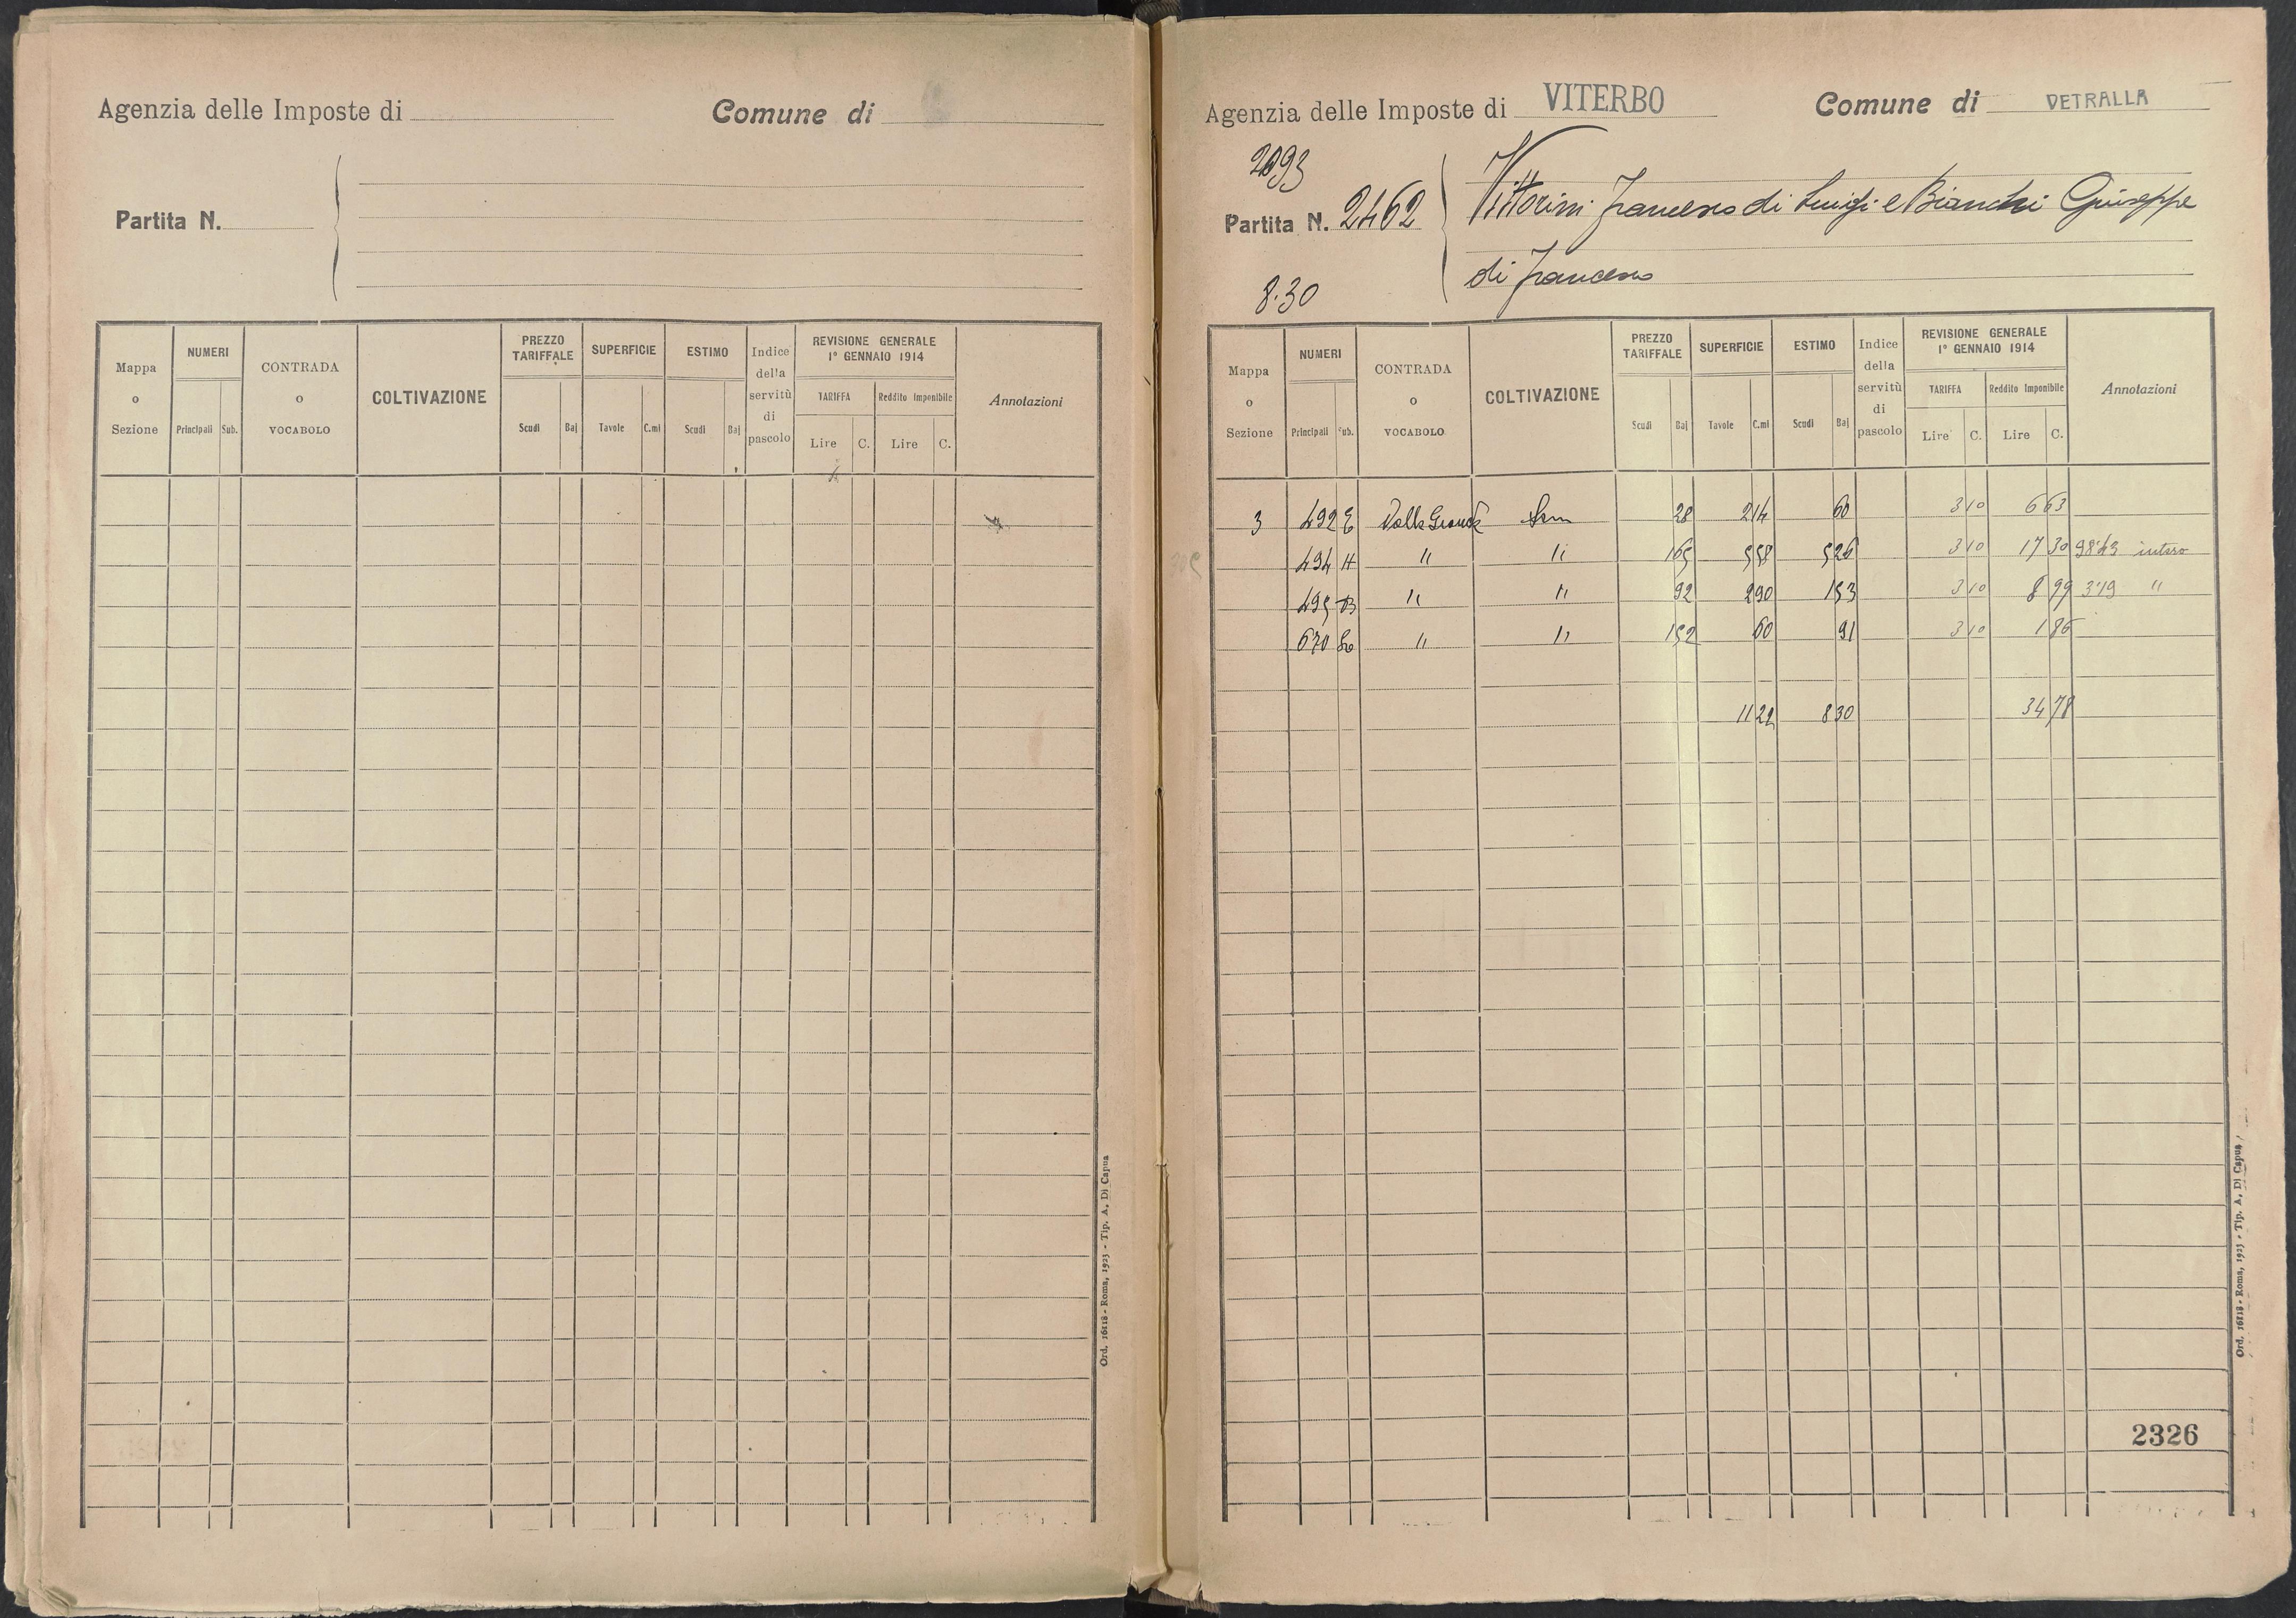 Agenzia delle Imposte di
Comune di
Partita N.
Mappa o Sezione
NUMERI
Principali Sub.
CONTRADA o VOCABOLO
COLTIVAZIONE
PREZZO TARIFFALE
Scudi Baj
SUPERFICIE
Tavole C.mi
ESTIMO
Scudi Baj
Indice della servitù di pascolo
REVISIONE GENERALE
1° GENNAIO 1914
TARIFFA Reddito Imponibile
Lire C. Lire C.
Annotazioni
Ord. 16118 - Roma, 1923 - Tip. A. Di Capua
Agenzia delle Imposte di VITERBO Comune di VETRALLA
2093
Partita N. 2462 Vittorini Francesco di Luigi e Bianchi Giuseppe
di Francesco
8.30
Mappa o Sezione
NUMERI
Principali Sub.
CONTRADA o VOCABOLO
COLTIVAZIONE
PREZZO TARIFFALE
Scudi Baj
SUPERFICIE
Tavole C.mi
ESTIMO
Scudi Baj
Indice della servitù di pascolo
REVISIONE GENERALE
1° GENNAIO 1914
TARIFFA Reddito Imponibile
Lire C. Lire C.
Annotazioni
3 492 Sem 28 214 60 3 10 6 63
494 H " " 165 558 526 3 10 17 30 intero
495 B " " 92 290 153 3 10 8 99 3 19 "
670 " " 152 60 91 3 10 1 86
11 22 8 30 34 78
2326
Ord. 16118 - Roma, 1923 - Tip. A. Di Capua